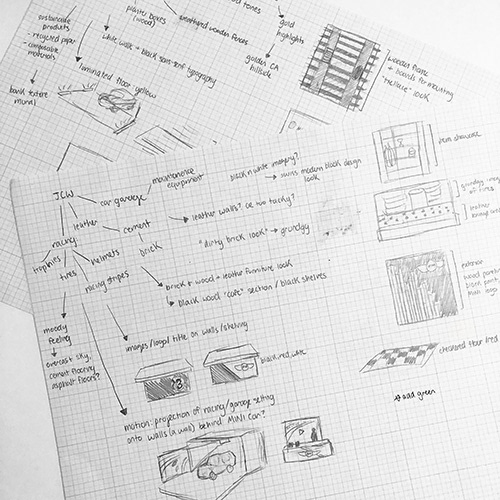 sustainable
products
- recycled paper
- compostable
materials
plaster boxes
(wood)
weathered wooden fences
tones
gold
highlights
golden CA
hillside
white walls + black sans-serif typography
laminated floor yellow
wooden
+ boards for mounting
look
mural
JCW
car garage
maintenance
equipment
black n white imagery?
→ swiss modern block design
look
leather
cement
→ leather walls? or too tacky?
racing
trophies
tires
helmets
brick
racing stripes
"dirty brick look" → grungy
brick + wood + leather furniture look
black wood "cafe" section / black shelves
moody
feeling
→ overcast sky,
cement flooring,
asphalt floors?
images/logo/title on walls/shelving
black, red, white
motion: projection of racing/garage setting
onto walls (a wall) behind MINI car?
item showcase
grungy
w/ tires
leather
lounge
exterior
wood panels
black paint,
main logo
checkered floor/red
* add green